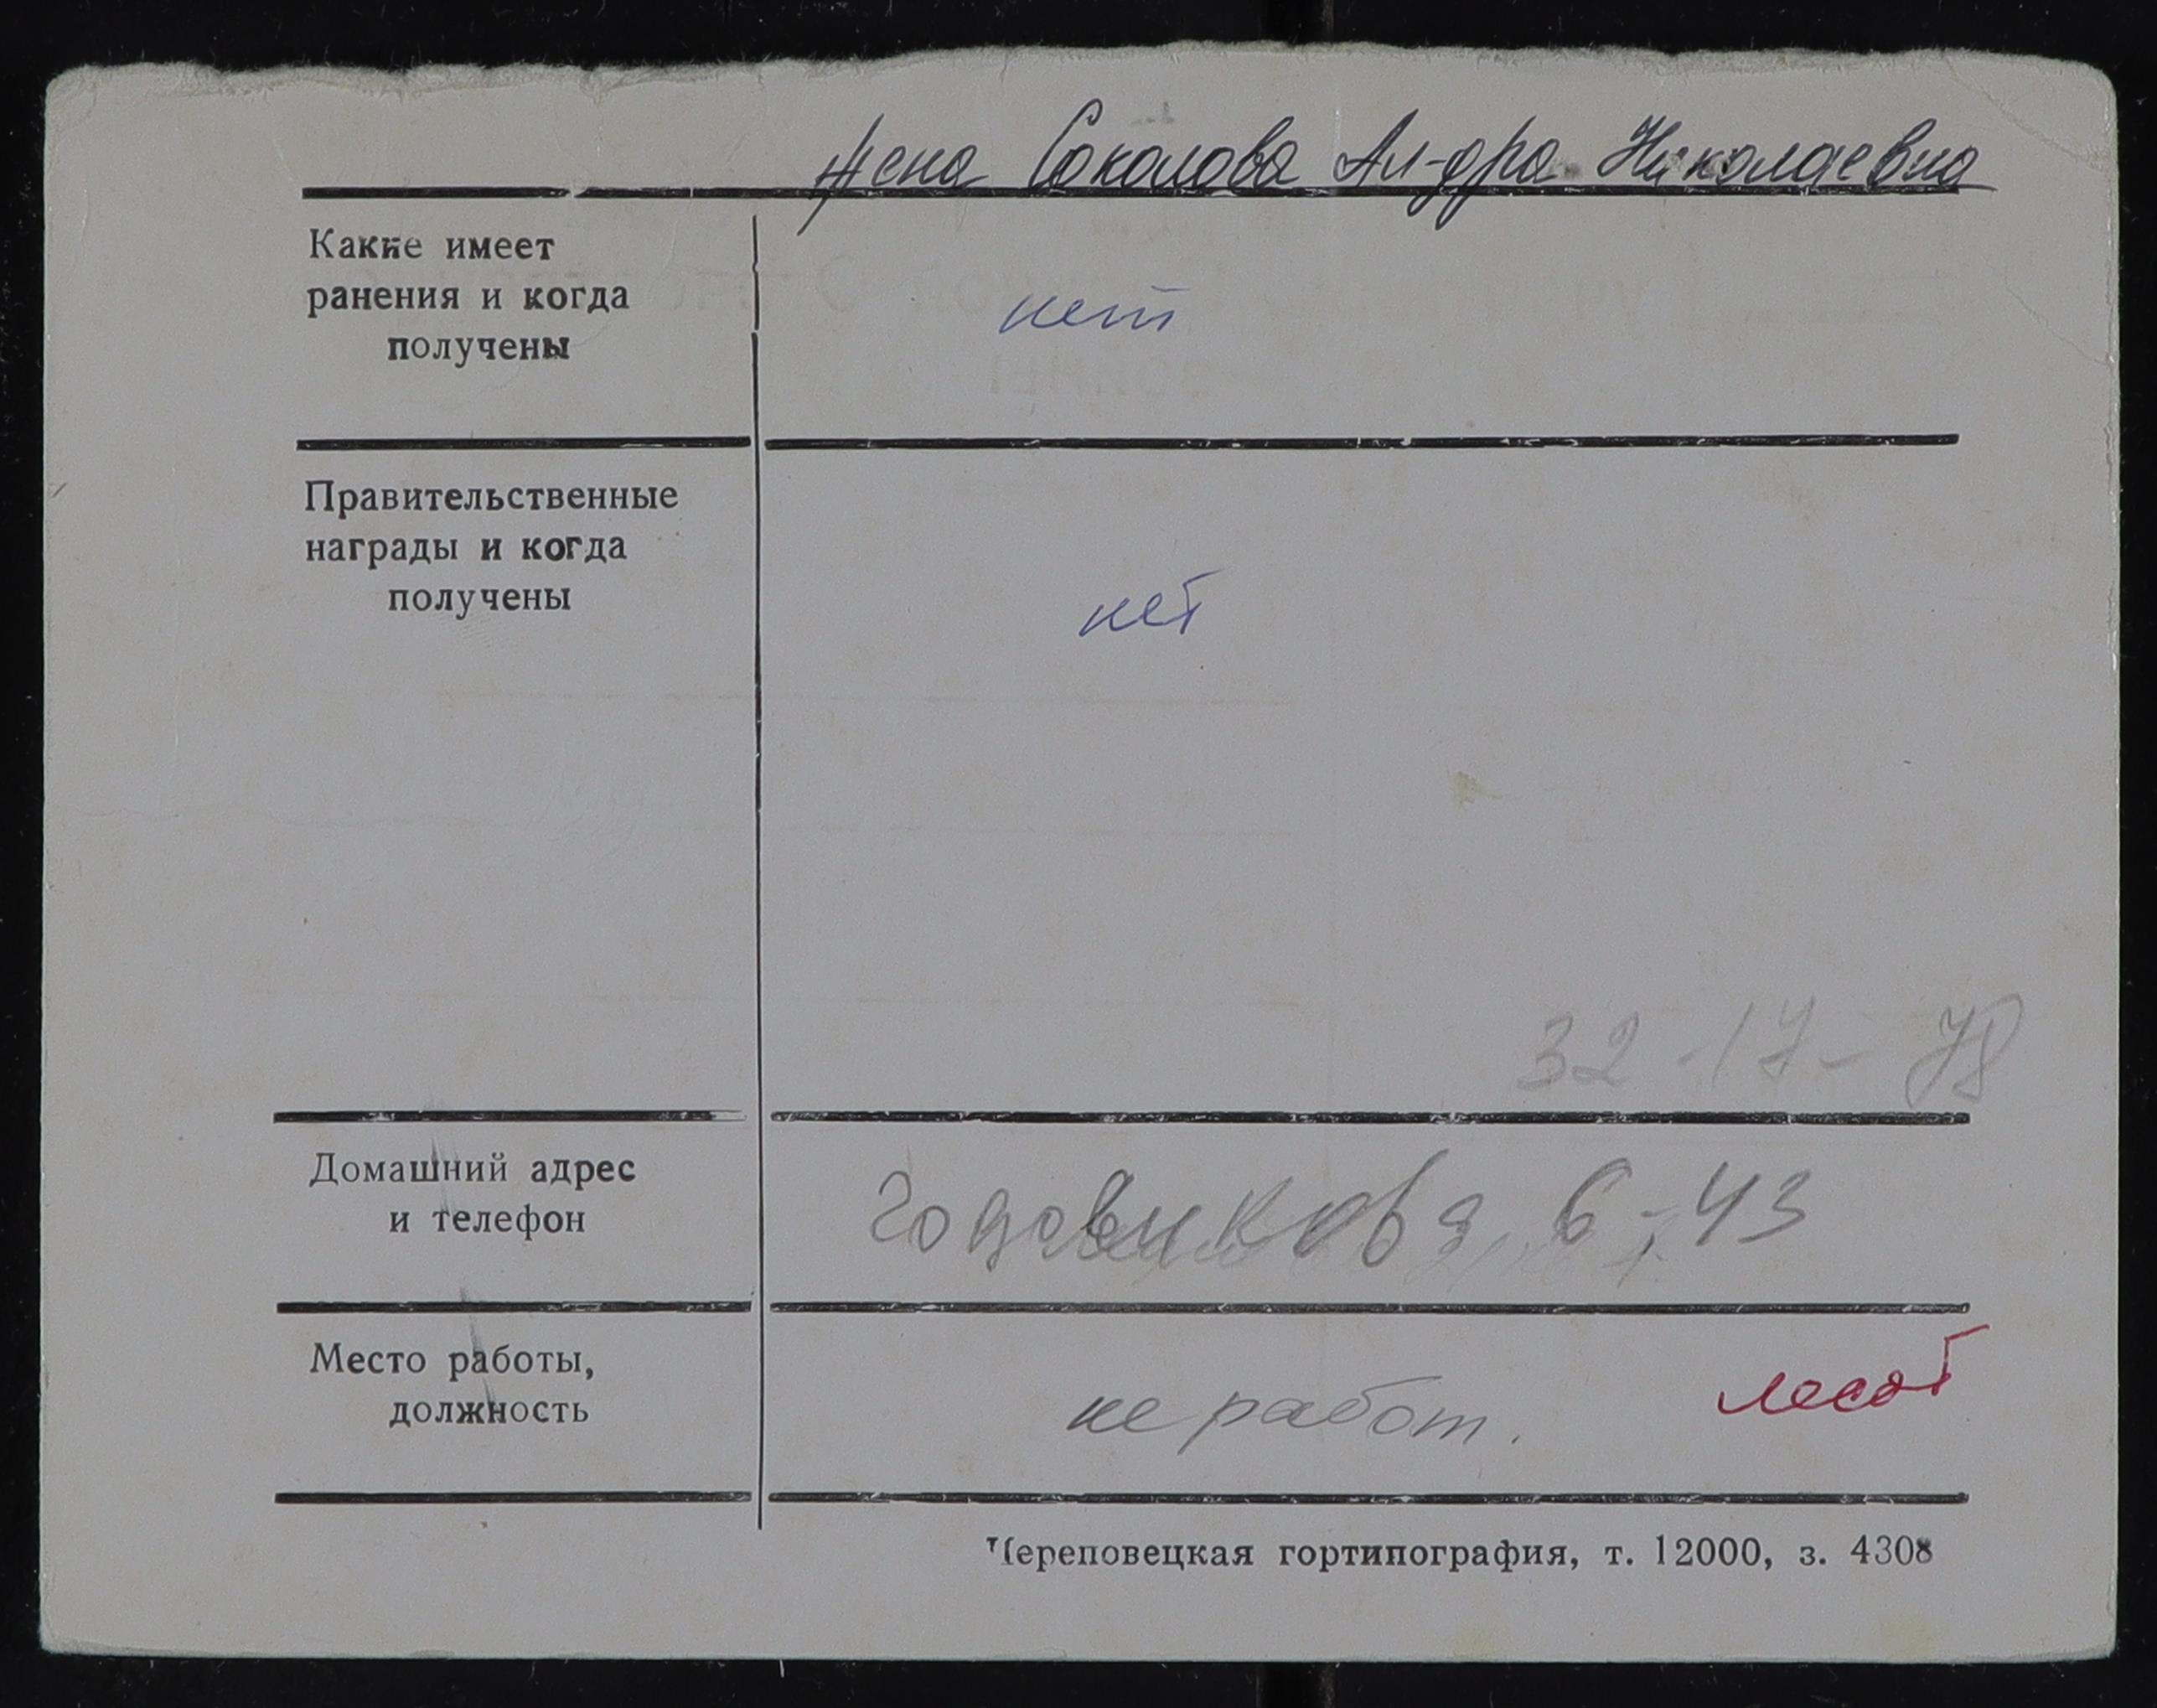 жена Соколова Ал-дра Николаевна
Какие имеет
ранения и когда
получены
нет
Правительственные
награды и когда
получены
нет
32-17-78
Домашний адрес
и телефон
Годовикова, 6-43
Место работы,
должность
не работ.
Череповецкая гортипография, т. 12000, з. 4308